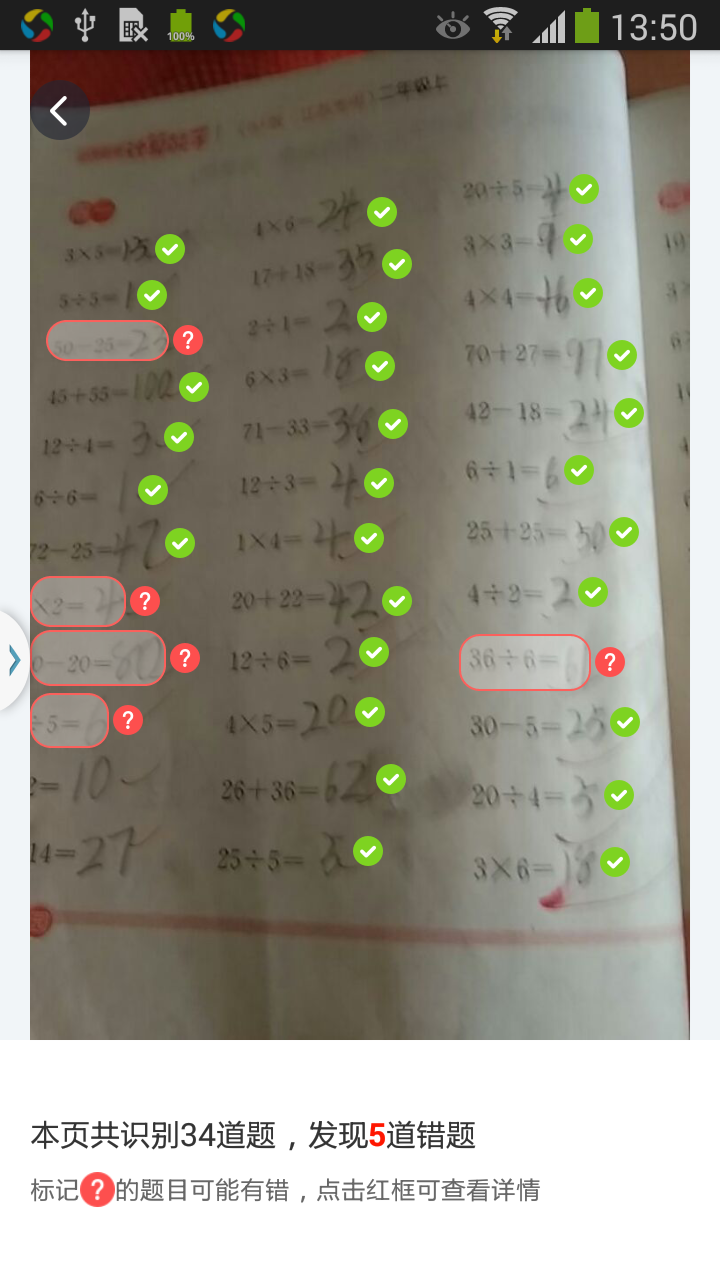 100%
13:50
二年级上
3×5=15
5÷5=1
50-25=
45+55=100
12÷4=3
6÷6=1
72-25=47
×2=4
0-20=80
÷5=6
2=10
14=27
4×6=24
17+18=35
2÷1=2
6×3=18
71-33=38
12÷3=4
1×4=4
20+22=42
12÷6=2
4×5=20
26+36=62
25÷5=5
20÷5=4
3×3=9
4×4=16
70+27=97
42-18=24
6÷1=6
25+25=50
4÷2=2
36÷6=6
30-5=25
20÷4=5
3×6=18
本页共识别34道题，发现5道错题
标记?的题目可能有错，点击红框可查看详情